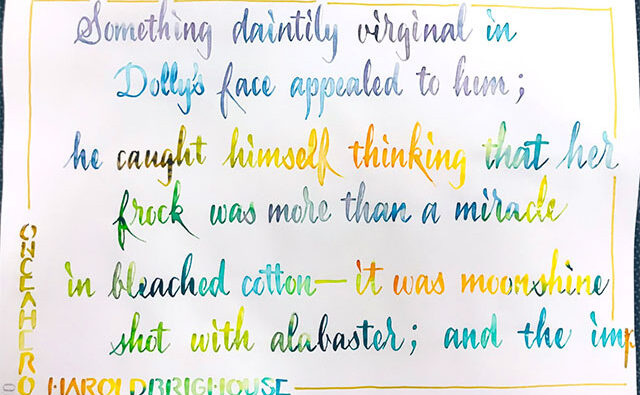 Something daintily virginal in
Dolly's face appealed to him;
he caught himself thinking that her
frock was more than a miracle
in bleached cotton—it was moonshine
shot with alabaster; and the imp
ONCE A HERO
HAROLD BRIGHOUSE